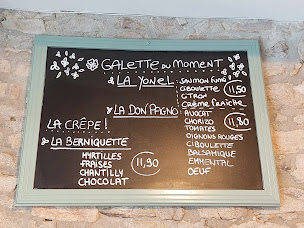 GALETTE DU MOMENT
LA YONEL
SAUMON FUMÉ
CIBOULETTE
CITRON
CRÈME FRAÎCHE
11,50
LA DON PAGNO
AVOCAT
CHORIZO
TOMATES
OIGNONS ROUGES
CIBOULETTE
BALSAMIQUE
EMMENTAL
OEUF
11,80
LA CRÊPE !
LA BERNIQUETTE
MYRTILLES
FRAISES
CHANTILLY
CHOCOLAT
11,90